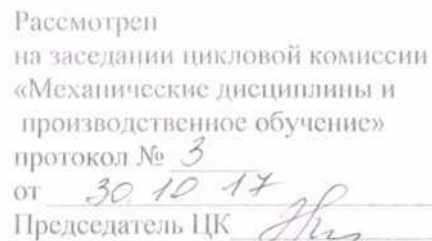 Рассмотрен
на заседании цикловой комиссии
«Механические дисциплины и
производственное обучение»
протокол № 3
от 30 10 17
Председатель ЦК